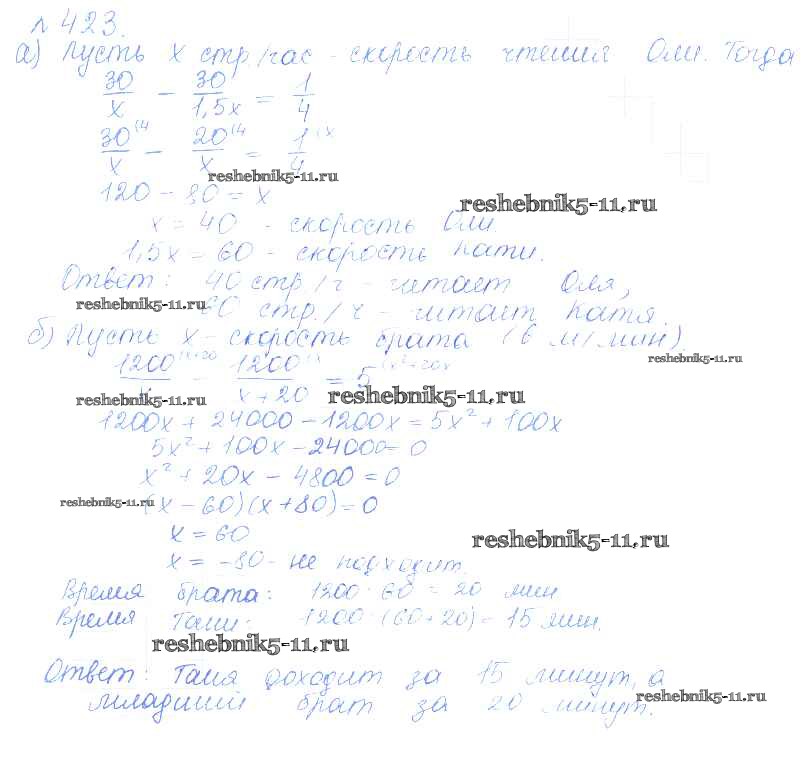 № 423.
а) Пусть x стр./час - скорость чтения Оли. Тогда
30/x - 30/1,5x = 1/4
30/x (4 - 20/x (4 = 1/4 (x
reshebnik5-11.ru
120 - 80 = x
reshebnik5-11.ru
x = 40 - скорость Оли.
1,5x = 60 - скорость Кати.
Ответ: 40 стр/ч - читает Оля,
reshebnik5-11.ru 60 стр./ч - читает Катя.
б) Пусть x - скорость брата (в м/мин).
reshebnik5-11.ru
1200 (x+20 - 1200 (x / x + 20 = 5 (x² + 20x
reshebnik5-11.ru reshebnik5-11.ru
1200x + 24000 - 1200x = 5x² + 100x
5x² + 100x - 24000 = 0
x² + 20x - 4800 = 0
reshebnik5-11.ru (x - 60)(x + 80) = 0
x = 60
reshebnik5-11.ru
x = -80 - не подходит.
Время брата: 1200 : 60 = 20 мин
Время Тани: 1200 : (60 + 20) = 15 мин.
reshebnik5-11.ru
Ответ: Таня доходит за 15 минут, а
reshebnik5-11.ru
младший брат за 20 минут.